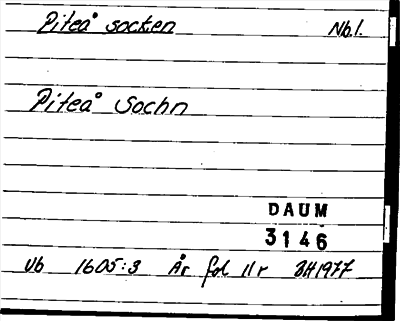 Piteå socken Nb.l.
Piteå Sochn
DAUM
3146
Vb 1605:3 År fol 11r 3H1977